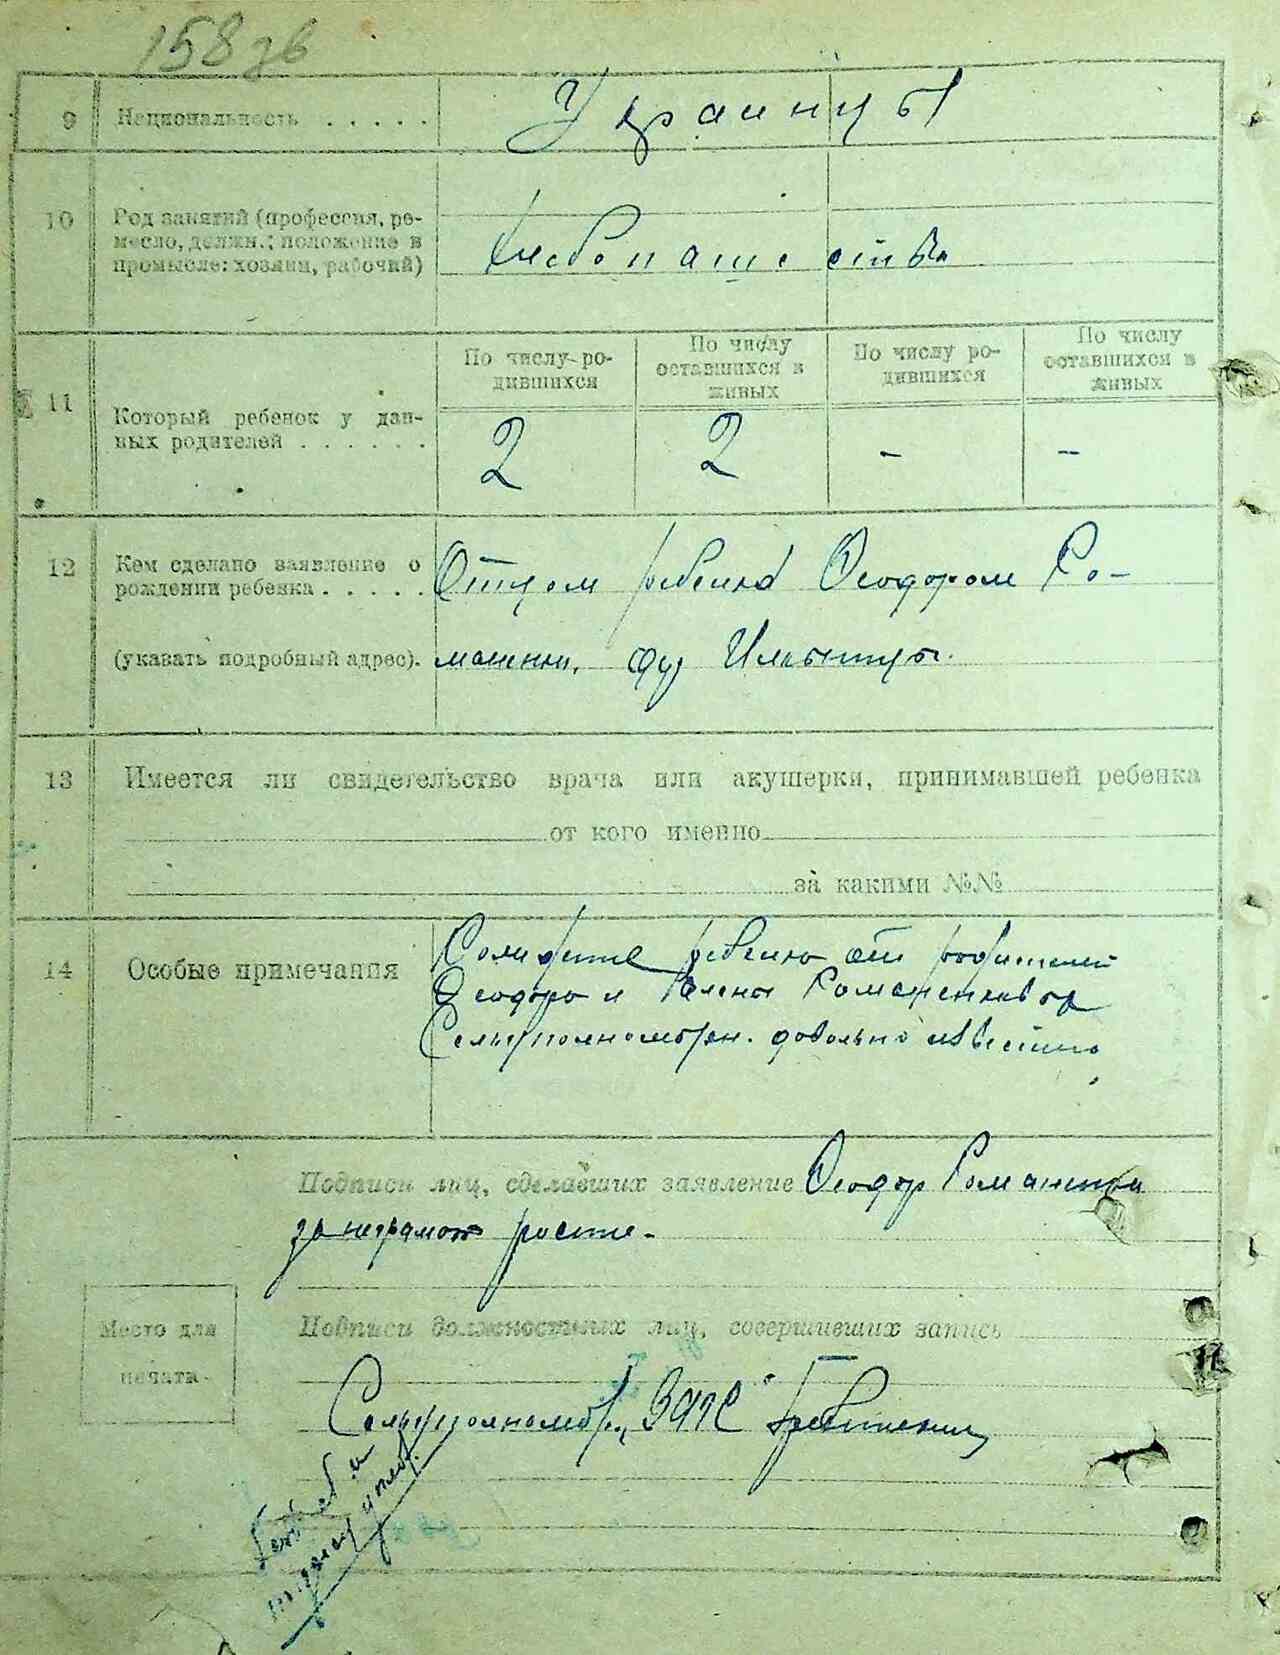 158 зв
9 Национальность . . . . . Украинцы
10 Род занятий (профессия, ре-
месло, должн.; положение в
промысле: хозяин, рабочий) Хлебопашество
11 Который ребенок у дан-
ных родителей . . . . . .
По числу ро-
дившихся
По числу
оставшихся в
живых
По числу ро-
дившихся
По числу
оставшихся в
живых
2 2 - -
12 Кем сделано заявление о
рождении ребенка . . . . . Отцом ребенка Феодором Ро-
(указать подробный адрес). маненко, Ильинцы.
13 Имеется ли свидетельство врача или акушерки, принимавшей ребенка
от кого именно
за какими №№
14 Особые примечания
ребенка от родителей
Феодора и Елены
Сельуполномочен. довольно известно
Подписи лиц, сделавших заявление Феодор Романенко
за неграмот росте.
Место для
печати.
Подписи должностных лиц, совершивших запись
Сельуполномоч. ЗАГС